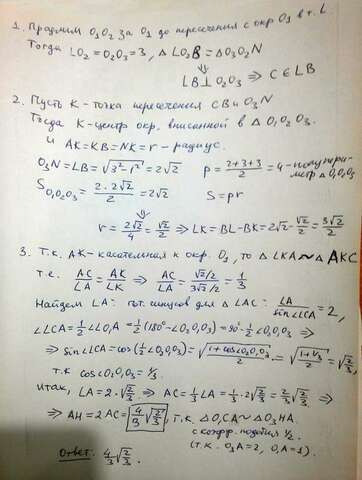 1. Продлим O₃O₂ за O₁ до пересечения с окр O₁ в т. L.
Тогда LO₂ = O₂O₃ = 3, △LO₂B = △O₃O₂N
⇓
LB ⊥ O₂O₃ ⇒ C ∈ LB
2. Пусть K - точка пересечения CB и O₃N
Тогда K - центр окр. вписанной в △O₁O₂O₃.
и AK = KB = NK = r - радиус.
O₃N = LB = √(3² - r²) = 2√2 p = (2+3+3)/2 = 4 - полупериметр △O₁O₂O₃
S_{O₁O₂O₃} = (2·2√2)/2 = 2√2 S = pr
⇓
r = 2√2/4 = √2/2 ⇒ LK = BL - BK = 2√2 - √2/2 = 3√2/2
3. Т.к. AK - касательная к окр. O₁, то △LKA ~ △AKC
т.е. AC/LA = AK/LK ⇒ AC/LA = (√2/2)/(3√2/2) = 1/3
Найдем LA: по т. синусов для △LAC: LA/sin∠LCA = 2,
∠LCA = ½∠LO₁A = ½(180° - ∠O₂O₁O₃) = 90° - ½∠O₂O₁O₃ ⇒
⇒ sin∠LCA = cos(½∠O₂O₁O₃) = √((1 + cos∠O₂O₁O₃)/2) = √((1 + 1/3)/2) = √(2/3),
т.к cos∠O₂O₁O₃ = 1/3.
Итак, LA = 2·√(2/3) ⇒ AC = ⅓LA = ⅓·2√(2/3) = ⅔√(2/3) ⇒
⇒ AH = 2AC = 4/3 √(2/3), т.к. △O₁CA ~ △O₃HA.
с коэфф. подобия ½
(т.к. O₃A = 2, O₁A = 1).
Ответ: 4/3 √(2/3).